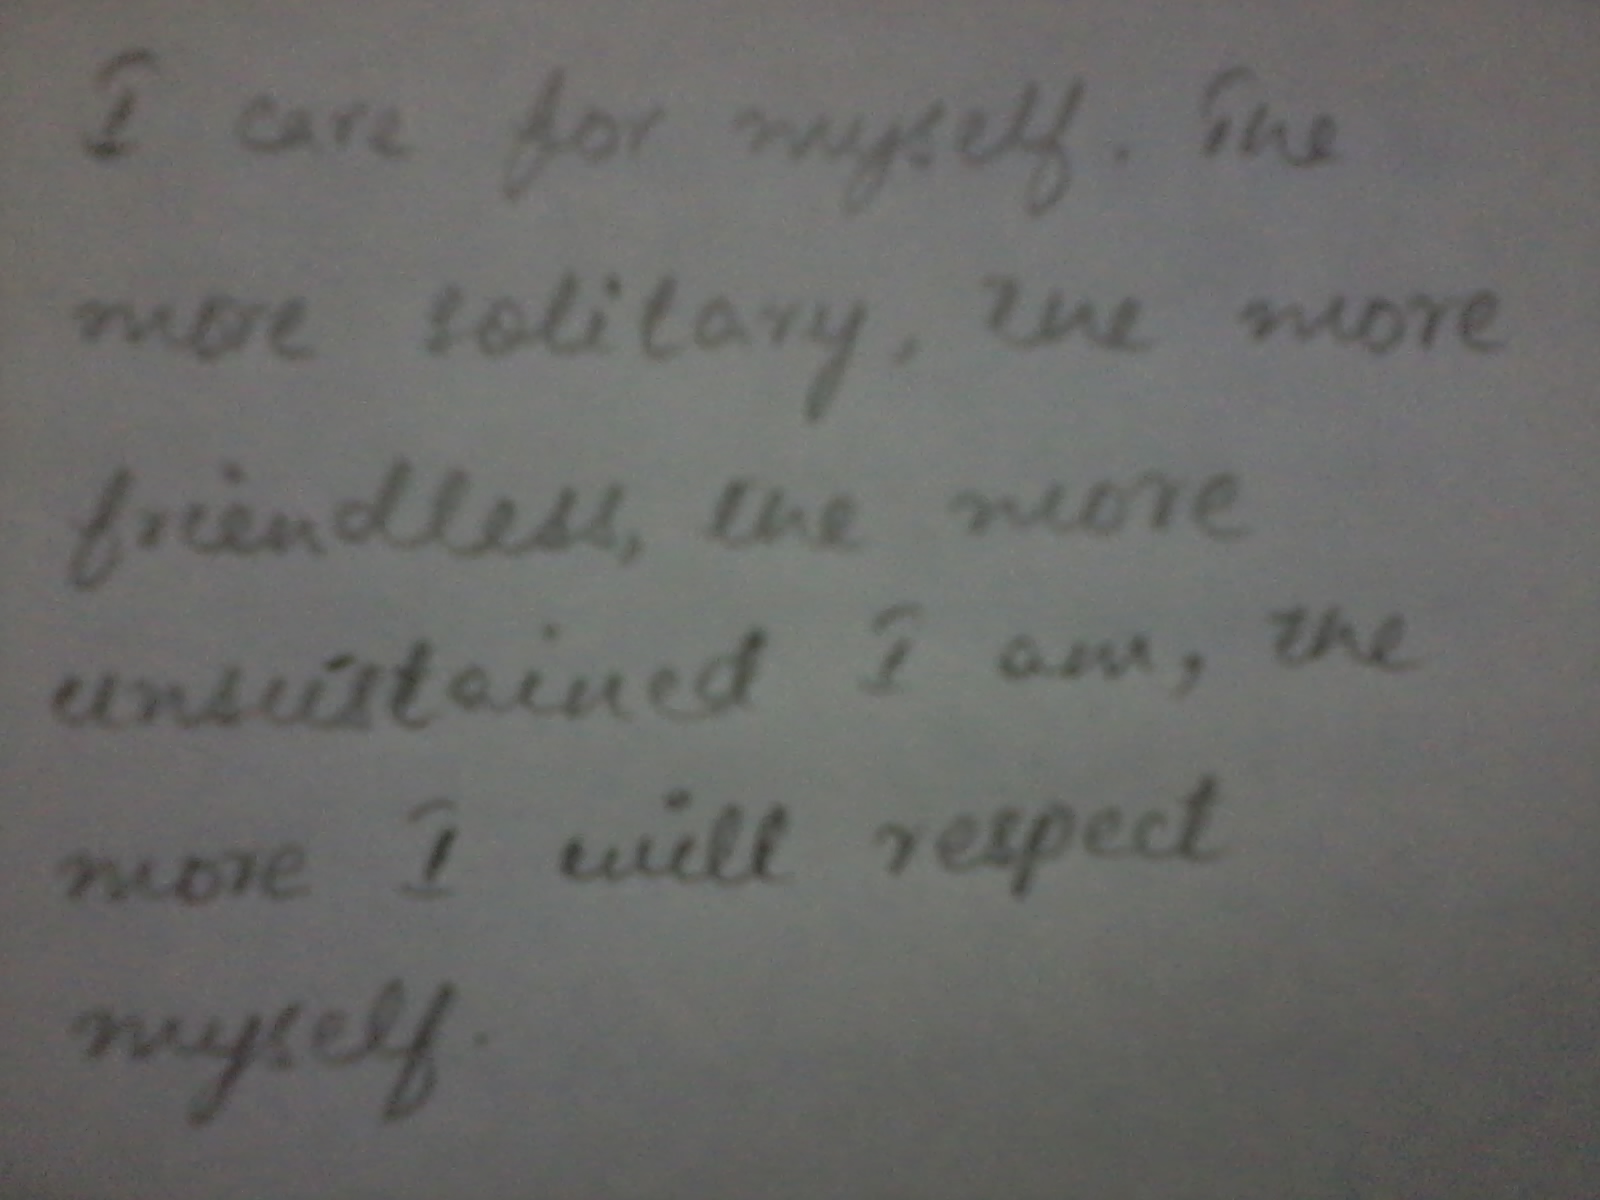 I care for myself. The
more solitary, the more
friendless, the more
unsustained I am, the
more I will respect
myself.